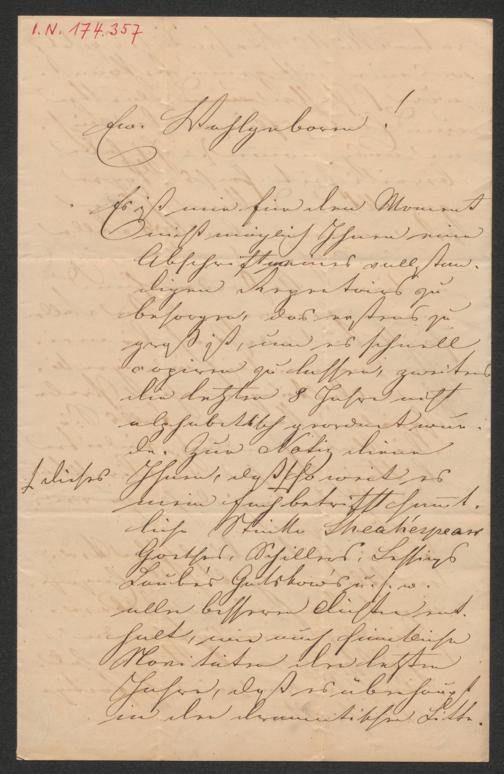 I. N. 174.357
Ew. Wohlgeboren!
Es ist mir für den Moment
nicht möglich Ihnen eine
Abschrift meines vollstän-
digen Repretoirs zu
besorgen, das erstens zu
groß ist, um es schnell
copiren zu lassen, zweitens
die letzten 8 Jahre nicht
alphabetisch geordnet wur-
de. Zur Notiz diene
Ihnen, daß so weit es
dieses
mein Fach betrifft sämmt-
liche Stücke Sheakespears
Goethes, Schillers, Lessings
Laubes Gutzkows u. s. w.
aller besseren Dichter ent-
hält, wie auch sämtliche
Novitäten der letzten
Jahre, daß es überhaupt
in der dramatischen Litte-